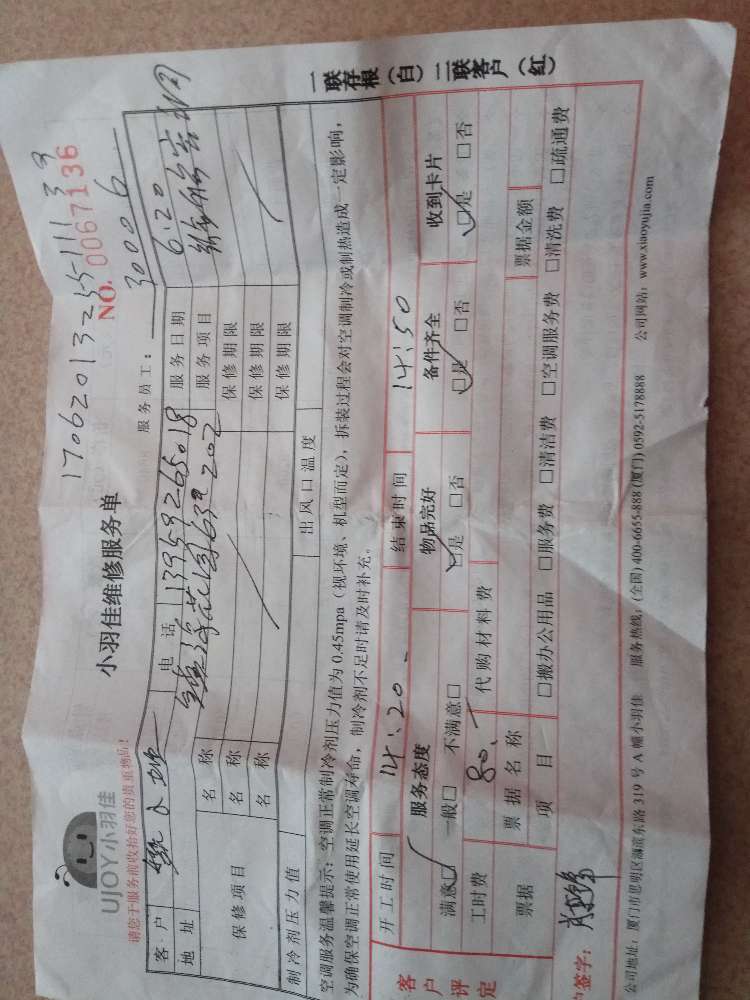 1706201325511139
UJOY小羽佳
小羽佳维修服务单
NO. 0067136
请您于服务前收拾好您的贵重物品!
服务员工: 3006
客·户
电 话 13969265018
服务日期 6.20
地 址
服务项目
保修项目
名 称
保修期限
名 称
保修期限
名 称
保修期限
制冷剂压力值
出风口温度
空调服务温馨提示:空调正常制冷剂压力值为0.45mpa(视环境、机型而定),拆装过程会对空调制冷或制热造成一定影响,
为确保空调正常使用延长空调寿命,制冷剂不足时请及时补充。
一联存根(白) 二联客户(红)
客户评定
开工时间 14:20
结束时间 14:50
服务态度
物品完好
备件齐全
收到卡片
满意□ 一般□ 不满意□
□是 □否
□是 □否
□是 □否
工时费 80.-
代购材料费
票据
票据名称
票据金额
项 目
□搬办公用品 □服务费 □清洁费 □空调服务费 □清洗费 □疏通费
户签字:
公司地址:厦门市思明区湖滨东路319号A幢小羽佳 服务热线:(全国)400-6655-888(厦门)0592-5178888 公司网站:www.xiaoyujia.com